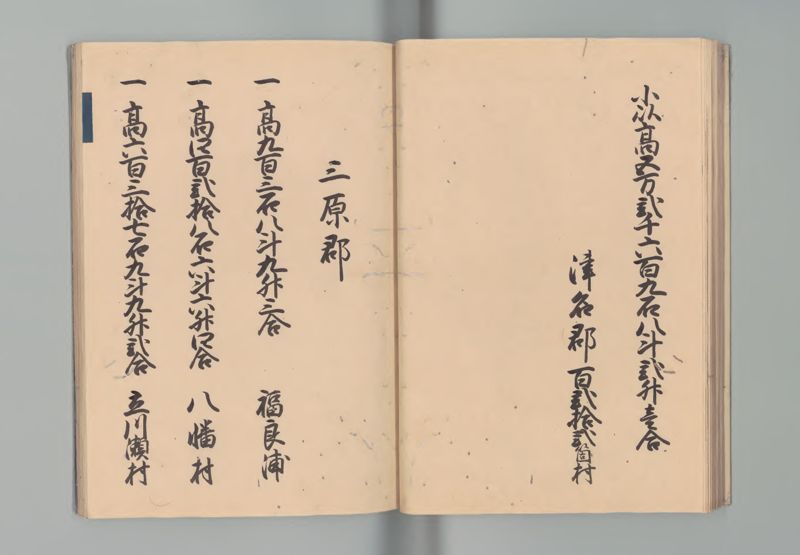 小以高五万弐千六百九石八斗弐升壱合
津名郡百弐拾弐箇村
三原郡
一高九百三石八斗九升三合 福良浦
一高四百弐拾八石六斗六升四合 八幡村
一高六百三拾七石九斗九升弐合 立川瀬村